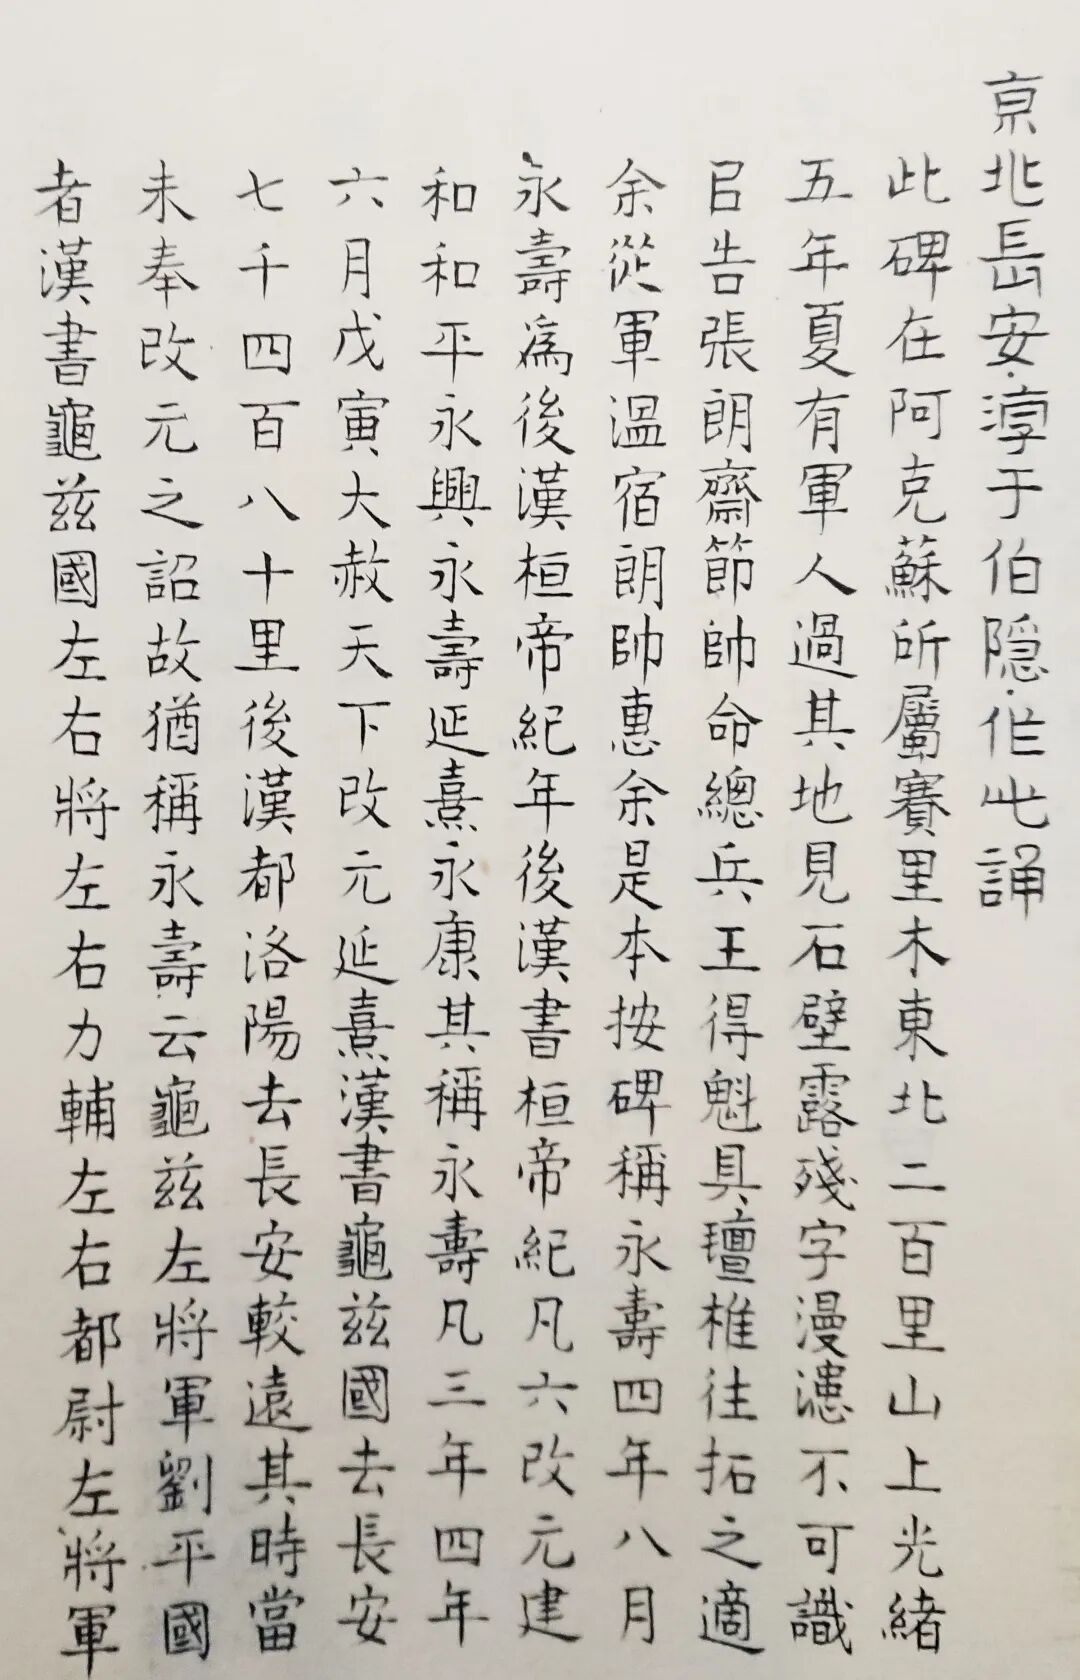 京北長安淳于伯隐作此誦
此碑在阿克蘇所屬賽里木東北二百里山上光緒
五年夏有軍人過其地見石壁露殘字漫漶不可識
㠯告張朗齋節帥命總兵王得魁具氊椎往拓之適
余從軍溫宿朗帥惠余是本按碑稱永壽四年八月
永壽爲後漢桓帝紀年後漢書桓帝紀凡六改元建
和和平永興永壽延熹永康其稱永壽凡三年四年
六月戊寅大赦天下改元延熹漢書龜茲國去長安
七千四百八十里後漢都洛陽去長安較遠其時當
未奉改元之詔故猶稱永壽云龜茲左將軍劉平國
者漢書龜茲國左右將左右力輔左右都尉左將軍